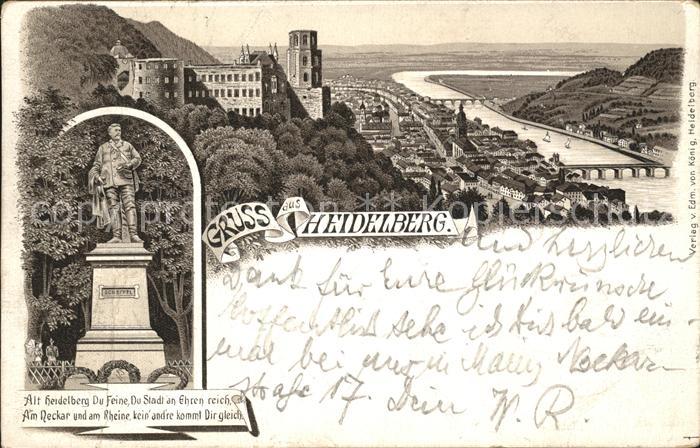 GRUSS aus HEIDELBERG.
Verlag v. Edm. von König, Heidelberg
SCHEFFEL
Alt Heidelberg Du Feine, Du Stadt an Ehren reich,
Am Neckar und am Rheine, kein' andre kommt Dir gleich.
und herzlichen
Dank für Eure Glückwünsche
Hoffentlich sehe ich Dich bald ein-
mal bei uns in Neckar-
straße 17. Dein W. R.
copyright picture